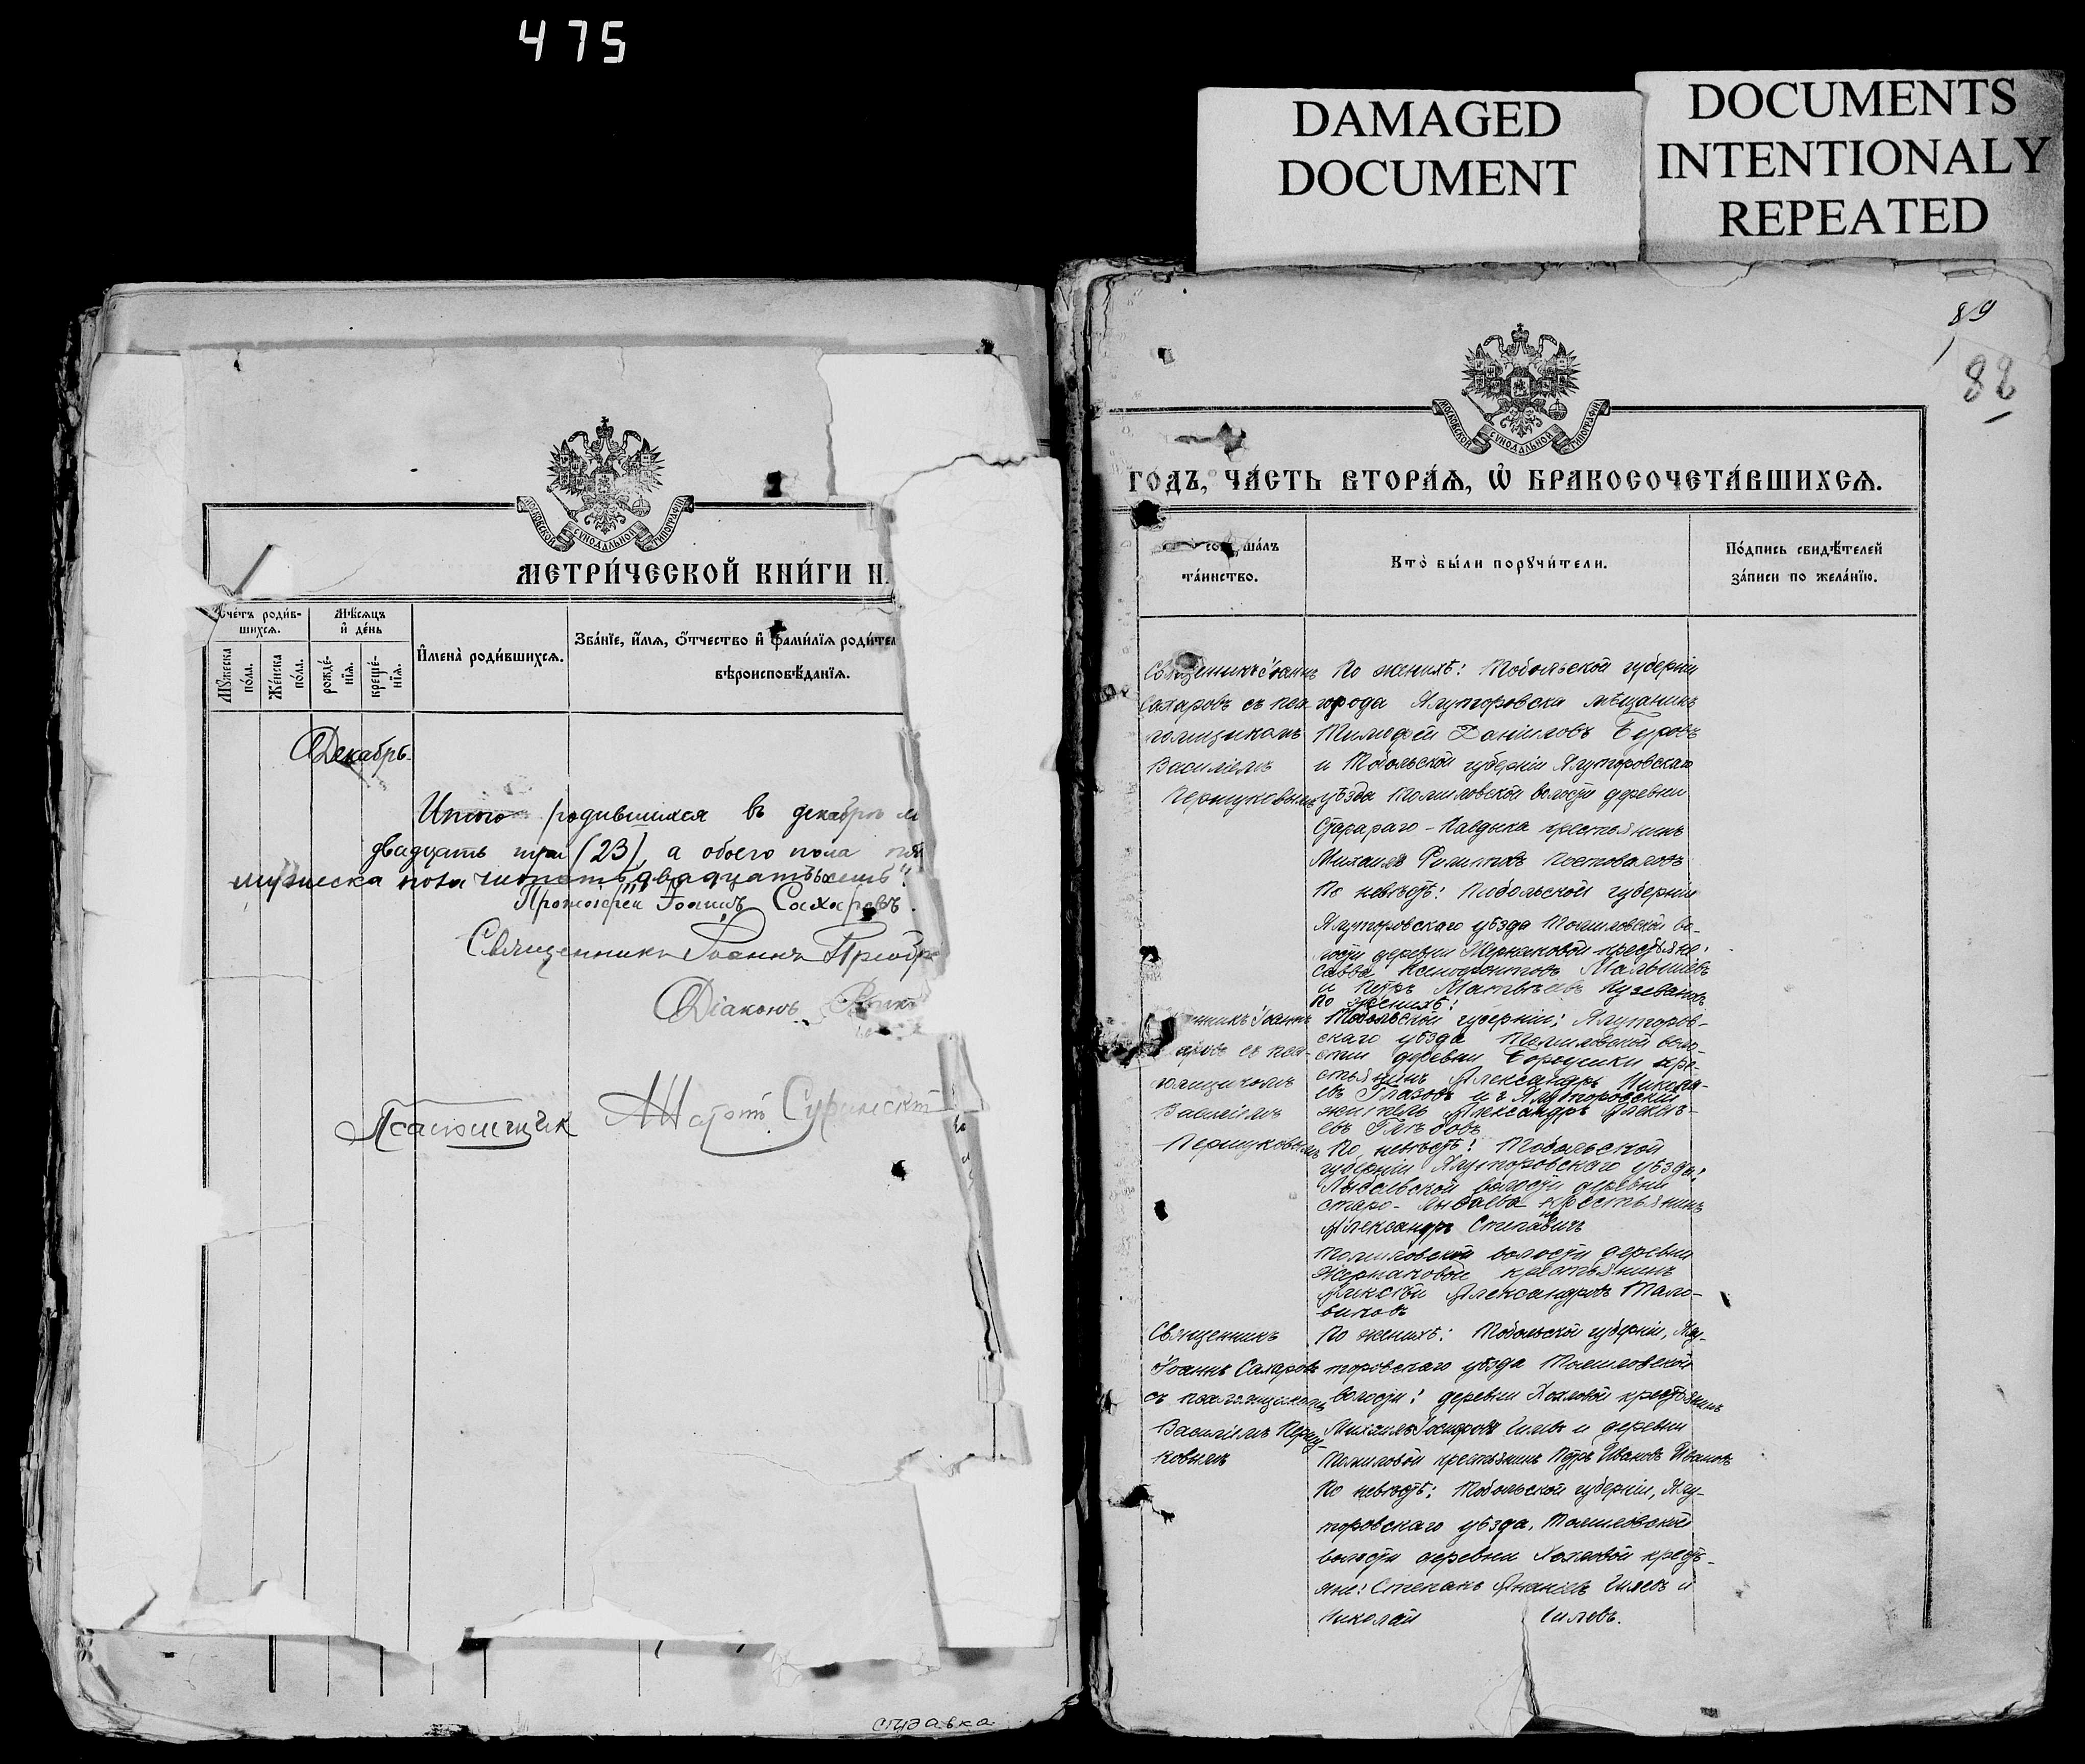 475
DAMAGED
DOCUMENT
DOCUMENTS
INTENTIONALY
REPEATED
МОСКОВСКОЙ СѴНОДАЛЬНОЙ ТИПОГРАФІИ
МЕТРИ́ЧЕСКОЙ КНИ́ГИ Н
Счетъ роди́в-
шихсѧ.
Мѹжеска по́ла.
Же́нска по́ла.
Мѣ́сѧцъ и҆ де́нь
рожде́-
нїѧ.
креще́-
нїѧ.
И҆мена̀ роди́вшихсѧ.
Зва́нїе, и҆́мѧ, ѻ҆́тчество и҆ фами́лїѧ роди́тел
вѣроисповѣ́данїѧ.
Декабрь.
Итого родившихся въ декабрѣ м
двадцать три (23), а обоего пола
мужеска пола двадцать
Протоіерей Іоаннъ Сахаровъ.
Священникъ Іоаннъ Преобр
Діаконъ
Псаломщикъ
ступавка
89
82
МОСКОВСКОЙ СѴНОДАЛЬНОЙ ТИПОГРАФІИ
ГО́ДЪ, ЧА́СТЬ ВТОРА́Ѧ, Ѡ҆ БРАКОСОЧЕТА́ВШИХСѦ.
сов ша́лъ
та́инство.
Кто̀ бы́ли порѹчи́тели.
По́дпись свидѣ́телей
за́писи по жела́нїю.
Священникъ Іоаннъ
Сахаровъ съ пса-
ломщикомъ
Василіемъ
Першуковымъ
По женихѣ: Тобольской губерніи
города Ялуторовска мѣщанинъ
Тимофей Даниловъ Буровъ
и Тобольской губерніи Ялуторовскаго
уѣзда Томиловской волости деревни
Стараго-Кавдыка крестьянинъ
Михаилъ Филиповъ Коноваловъ
По невѣстѣ: Тобольской губерніи
Ялуторовскаго уѣзда Томиловской во-
лости деревни Жернаковой крестьяне:
Савва Ксенофонтовъ Малышевъ
и Петръ Матвѣевъ Кузевановъ
нникъ Іоаннъ
аровъ съ пса-
ломщикомъ
Василіемъ
Першуковымъ
По женихѣ:
Тобольской губерніи; Ялуторов-
скаго уѣзда Томиловской воло-
сти деревни Бородинки кре-
стьянинъ Александръ Никола-
евъ Глазовъ и г. Ялуторовскій
житель Александръ Алексѣ-
евъ Глѣбовъ
По невѣстѣ: Тобольской
губерніи Ялуторовскаго уѣзда:
Лыбаевской волости деревни
старо-Лыбаева крестьянинъ
Александръ Степановичъ
Томиловской волости деревни
Жернаковой крестьянинъ
Алексѣй Александровъ Мали-
Священникъ
Іоаннъ Сахаровъ
съ псаломщикомъ
Василіемъ Першу-
ковымъ
По женихѣ: Тобольской губерніи, Ялу-
торовскаго уѣзда Томиловской
волости: деревни Хохловой крестьянинъ
Михаилъ и деревни
Томиловой крестьянинъ Петръ Ивановъ Ивановъ
По невѣстѣ: Тобольской губерніи, Ялу-
торовскаго уѣзда, Томиловской
волости деревни Хохловой кресть-
яне: Степанъ Ананіевъ и
Николай